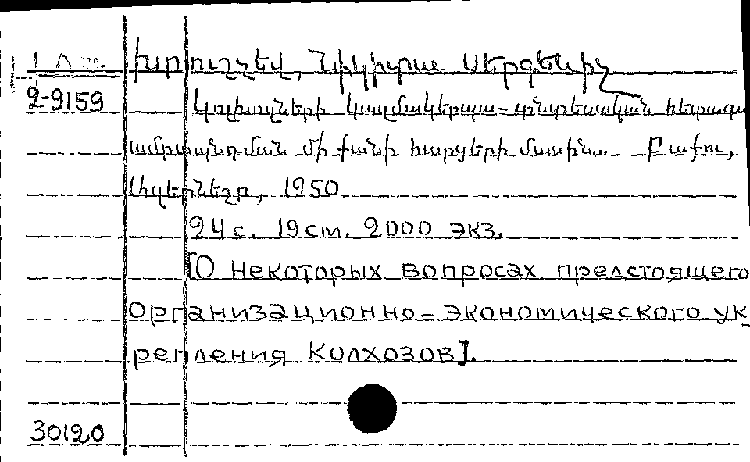 Խրուշչեվ, Նիկիտա Սերգեևիչ
2-9159 Կոլխոզների կազմակերպա-տնտեսական հետագա
ամրապնդման մի քանի հարցերի մասին. Բաքու,
Ազերնեշր, 1950
24 с. 19 см. 2000 экз.
[О некоторых вопросах предстоящего
организационно-экономического ук
репления Колхозов].
30120